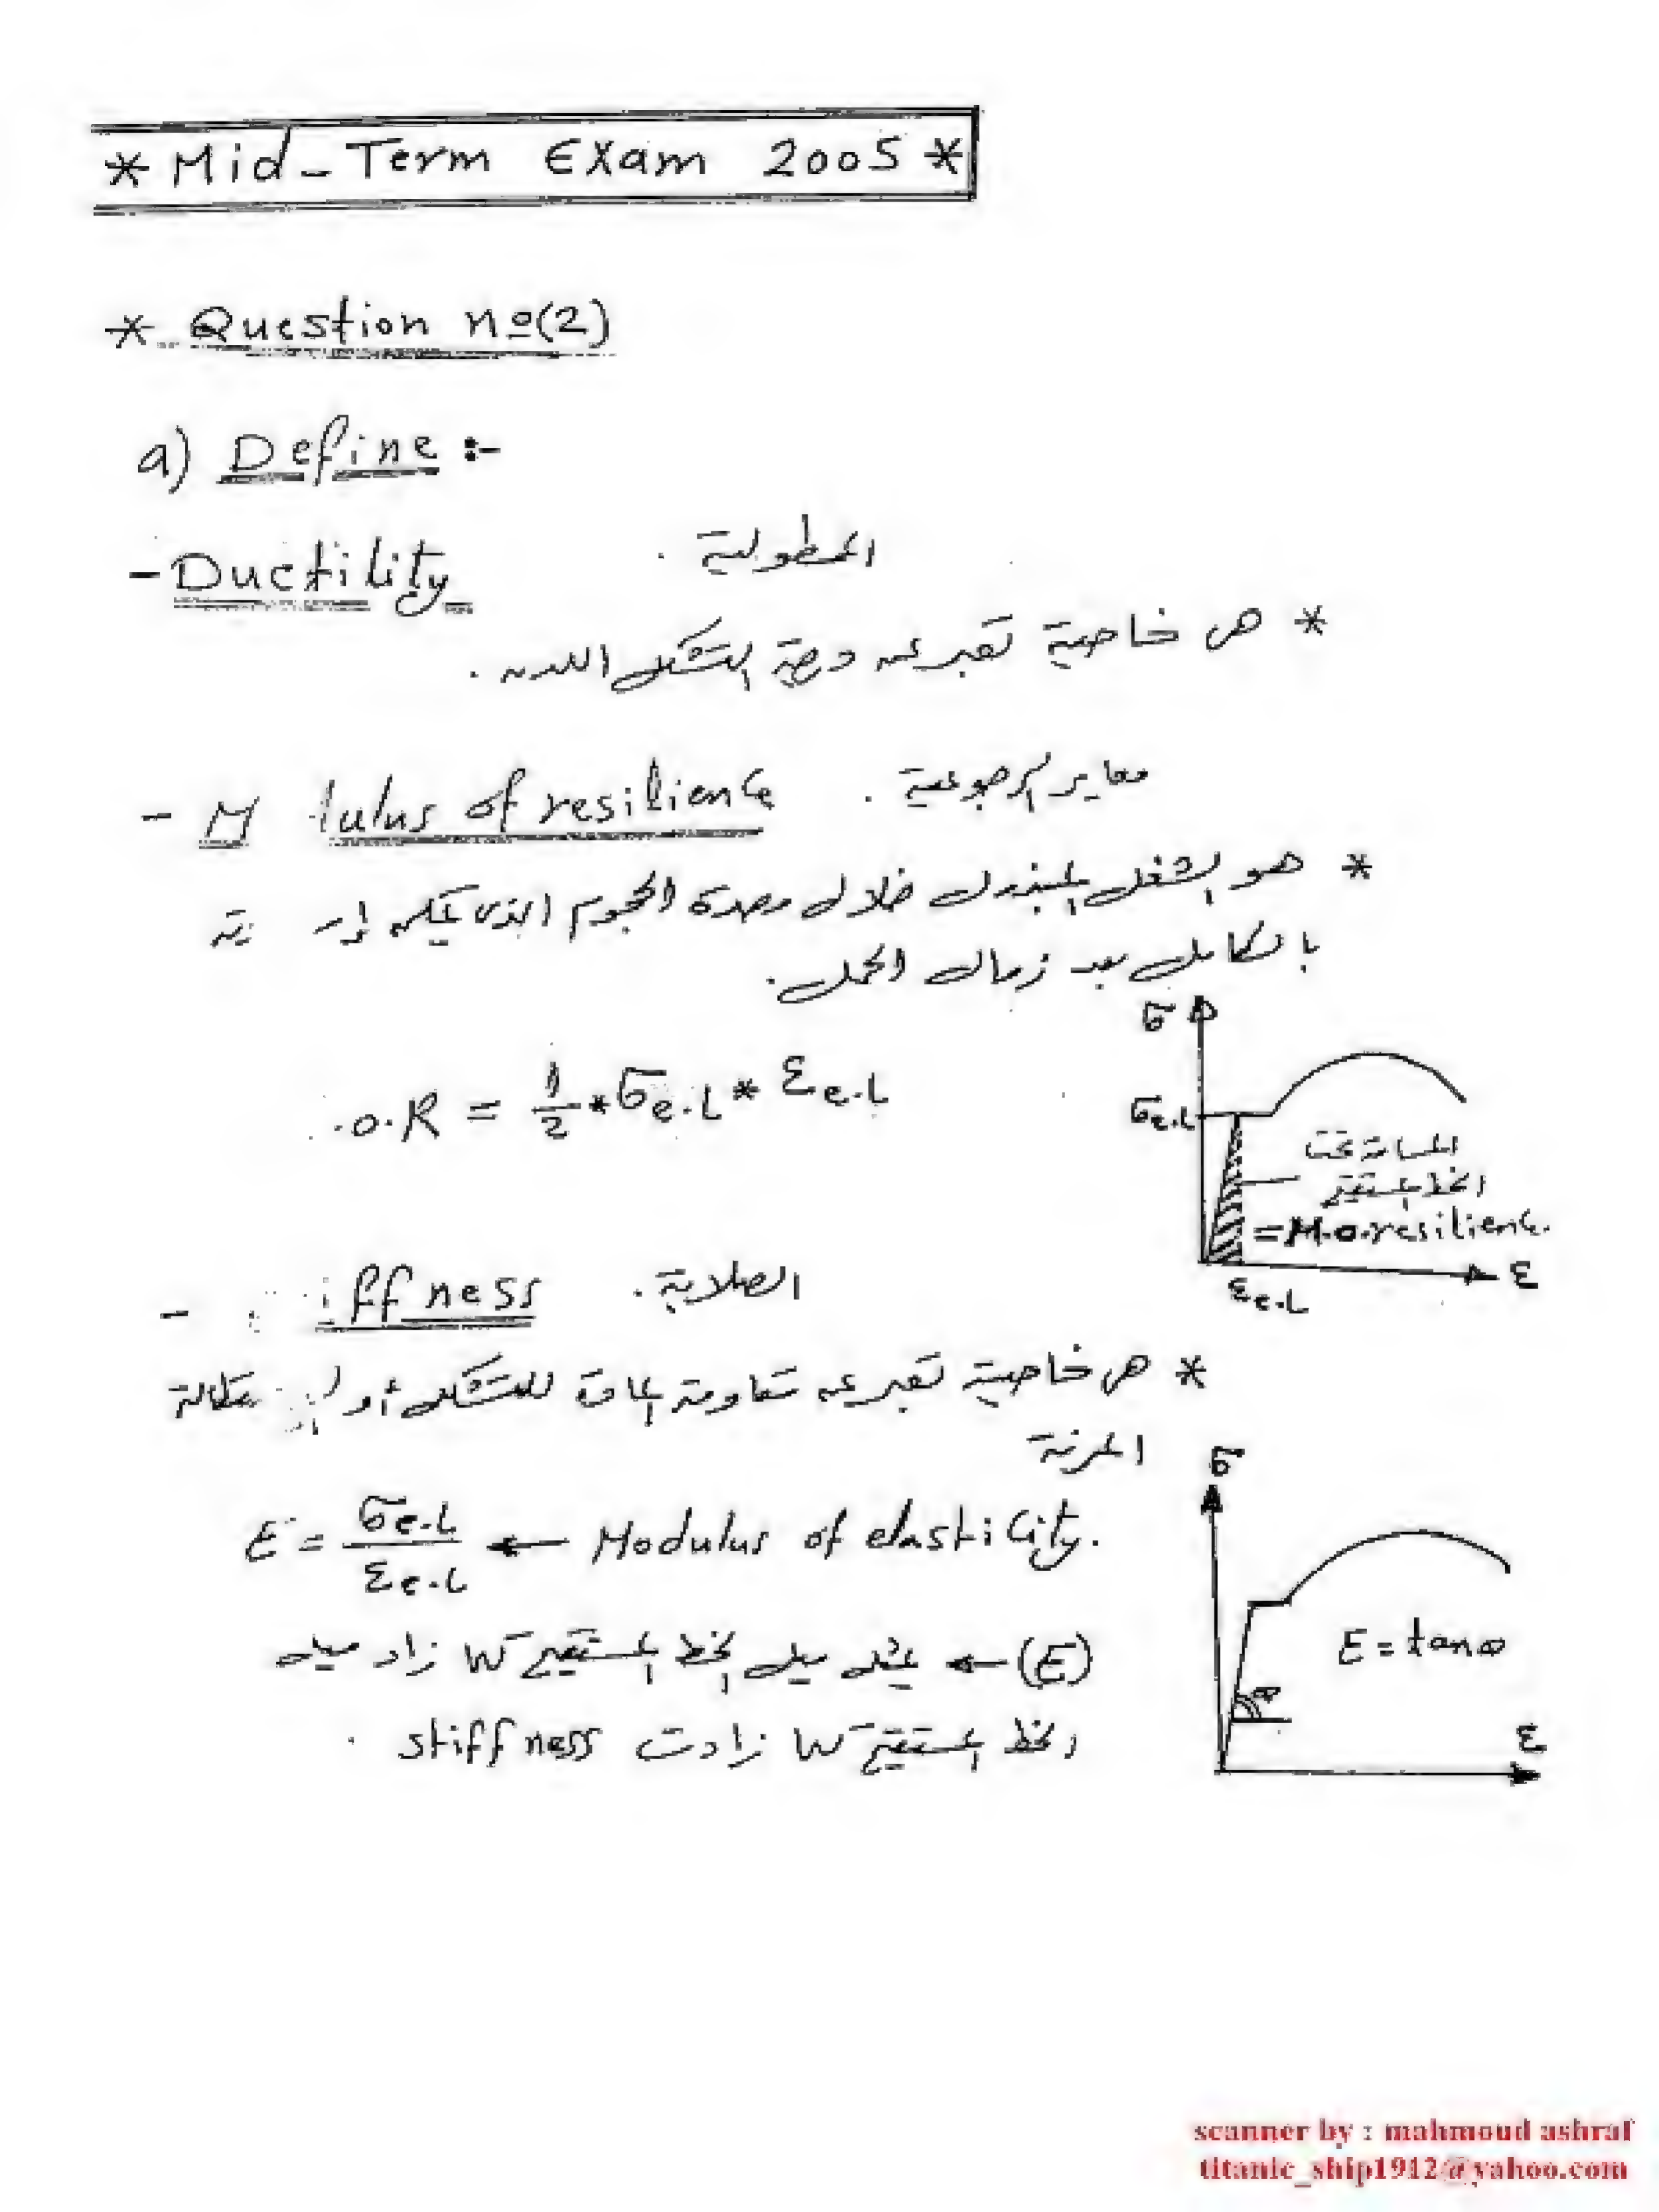 * Mid-Term Exam 2005 *
* Question nº(2)
a) Define :-
- Ductility المطولية .
* هى خاصية تعبر عن درجة التشكل اللدن .
- M lulus of resilience معاير الرجوعية .
* هو الشغل المبذول خلال وحدة الحجوم الذى يمكن
بالكامل بعد زوال الحمل .
.o.R = 1/2 * σe.L * εe.L
σ
σe.L
المساحة تحت
الخط المستقيم
= M.o.resilience.
εe.L
ε
- iffness الصلابة .
* هى خاصية تعبر عن مقاومة المادة للتشكل أو
المرنة
E = σe.L / εe.L ← Modulus of elasticity.
(E) ← يمثل ميل الخط المستقيم كلما زاد ميل
الخط المستقيم كلما زادت stiffness .
σ
E = tanθ
θ
ε
scanner by : mahmoud ashraf
titanic_ship1912@yahoo.com